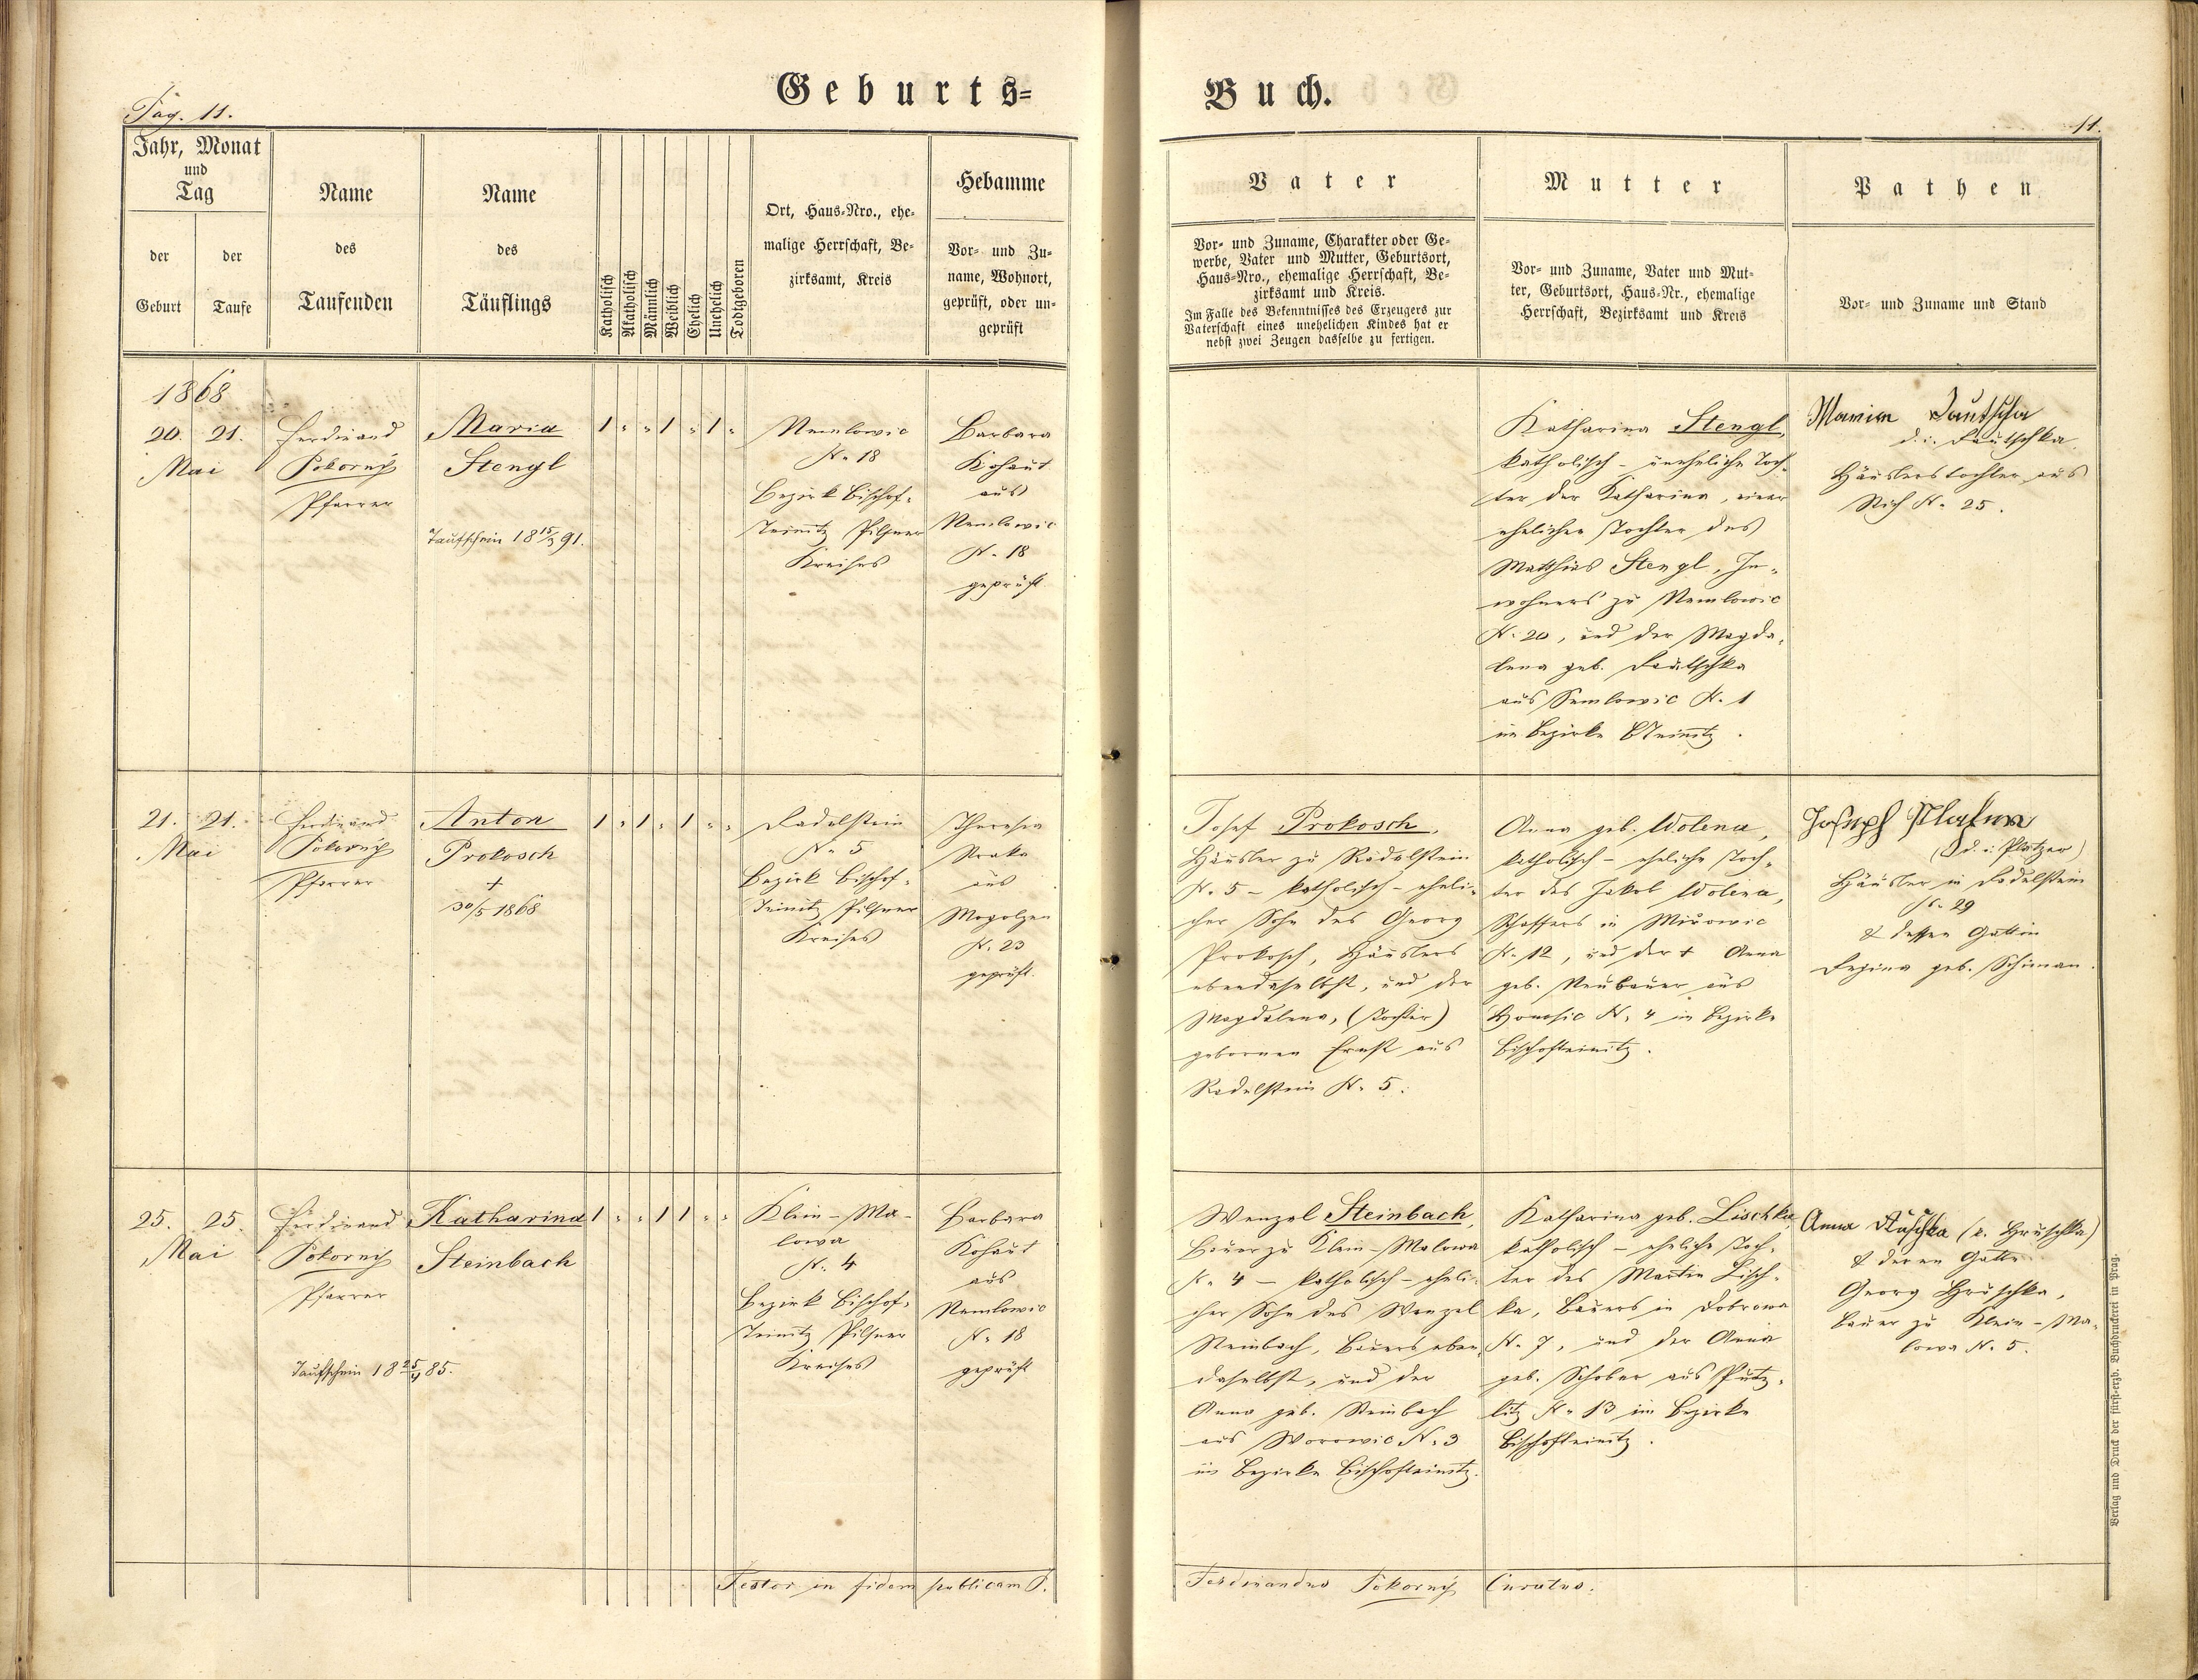 Geburts-
Buch.
Pag. 11.
11.
Jahr, Monat
und
Tag
der
Geburt
der
Taufe
Name
des
Taufenden
Name
des
Täuflings
Katholisch
Akatholisch
Männlich
Weiblich
Ehelich
Unehelich
Todtgeboren
Ort, Haus-Nro., ehe-
malige Herrschaft, Be-
zirksamt, Kreis
Hebamme
Vor- und Zu-
name, Wohnort,
geprüft, oder un-
geprüft
Vater
Vor- und Zuname, Charakter oder Ge-
werbe, Vater und Mutter, Geburtsort,
Haus-Nro., ehemalige Herrschaft, Be-
zirksamt und Kreis.
Im Falle des Bekenntnisses des Erzeugers zur
Vaterschaft eines unehelichen Kindes hat er
nebst zwei Zeugen dasselbe zu fertigen.
Mutter
Vor- und Zuname, Vater und Mut-
ter, Geburtsort, Haus-Nr., ehemalige
Herrschaft, Bezirksamt und Kreis
Pathen
Vor- und Zuname und Stand
1868
20. 21.
Mai
Ferdinand
Pokorný
Pfarrer
Maria
Stengl
Taufschein 18 15/3 91.
1 " " 1 " 1 "
Nemlowic
N. 18
Bezirk Bischof-
teinitz Pilsner
Kreises
Barbara
Kohaut
aus
Nemlowic
N. 18
geprüft
Katharina Stengl,
katholisch - uneheliche Toch-
ter der Katharina, einer
ehelichen Tochter des
Matthias Stengl, In-
wohners zu Nemlowic
N. 20, und der Magda-
lena geb. Deutschka
aus Semlowic N. 1
im Bezirke BTeinitz.
d. i. Deutschka
Häuslerstochter aus
N. 25.
21. 21.
Mai
Ferdinand
Pokorný
Pfarrer
Anton
Prokosch
+
30/5 1868
1 " 1 " 1 " "
Radelstein
N. 5
Bezirk Bischof-
teinitz Pilsner
Kreises
Theresia
aus
Mogolzen
N. 23
geprüft.
Josef Prokosch,
Häusler zu Radelstein
N. 5 - katholisch - eheli-
cher Sohn des Georg
Prokosch, Häuslers
ebendaselbst, und der
Magdalena, (Tochter)
gebornen Ernst aus
Radelstein N. 5.
Anna geb. Wolena,
katholisch - eheliche Toch-
ter des Jakob Wolena,
Schaffers in Mirowic
N. 12, und der + Anna
geb. Neubauer aus
Honosic N. 4 im Bezirke
Bischofteinitz.
Joseph
(d. i. Platzer)
Häusler in Radelstein
N. 29
& dessen Gattin
Regina geb. Schiman.
25. 25.
Mai
Ferdinand
Pokorný
Pfarrer
Katharina
Steinbach
Taufschein 18 25/4 85.
1 " " 1 1 " "
Klein-Ma-
lowa
N. 4
Bezirk Bischof-
teinitz Pilsner
Kreises
Barbara
Kohaut
aus
Nemlowic
N. 18
geprüft
Wenzel Steinbach,
Bauer zu Klein-Malowa
N. 4 - katholisch - eheli-
cher Sohn des Wenzel
Steinbach, Bauers eben-
daselbst, und der
Anna geb. Steinbach
aus Worowic N. 3
im Bezirke Bischofteinitz.
Katharina geb. Lischka,
katholisch - eheliche Toch-
ter des Martin Lisch-
ka, Bauers in Dobrowa
N. 7, und der Anna
geb. Schober aus Putz-
litz N. 13 im Bezirke
Bischofteinitz.
Anna (r. Hruschka)
& deren Gatte
Georg Hruschka,
Bauer zu Klein-Ma-
lowa N. 5.
Testor in fidem publicam P. Ferdinandus Pokorný Curatus.
Verlag und Druck der fürst-erzb. Buchdruckerei in Prag.